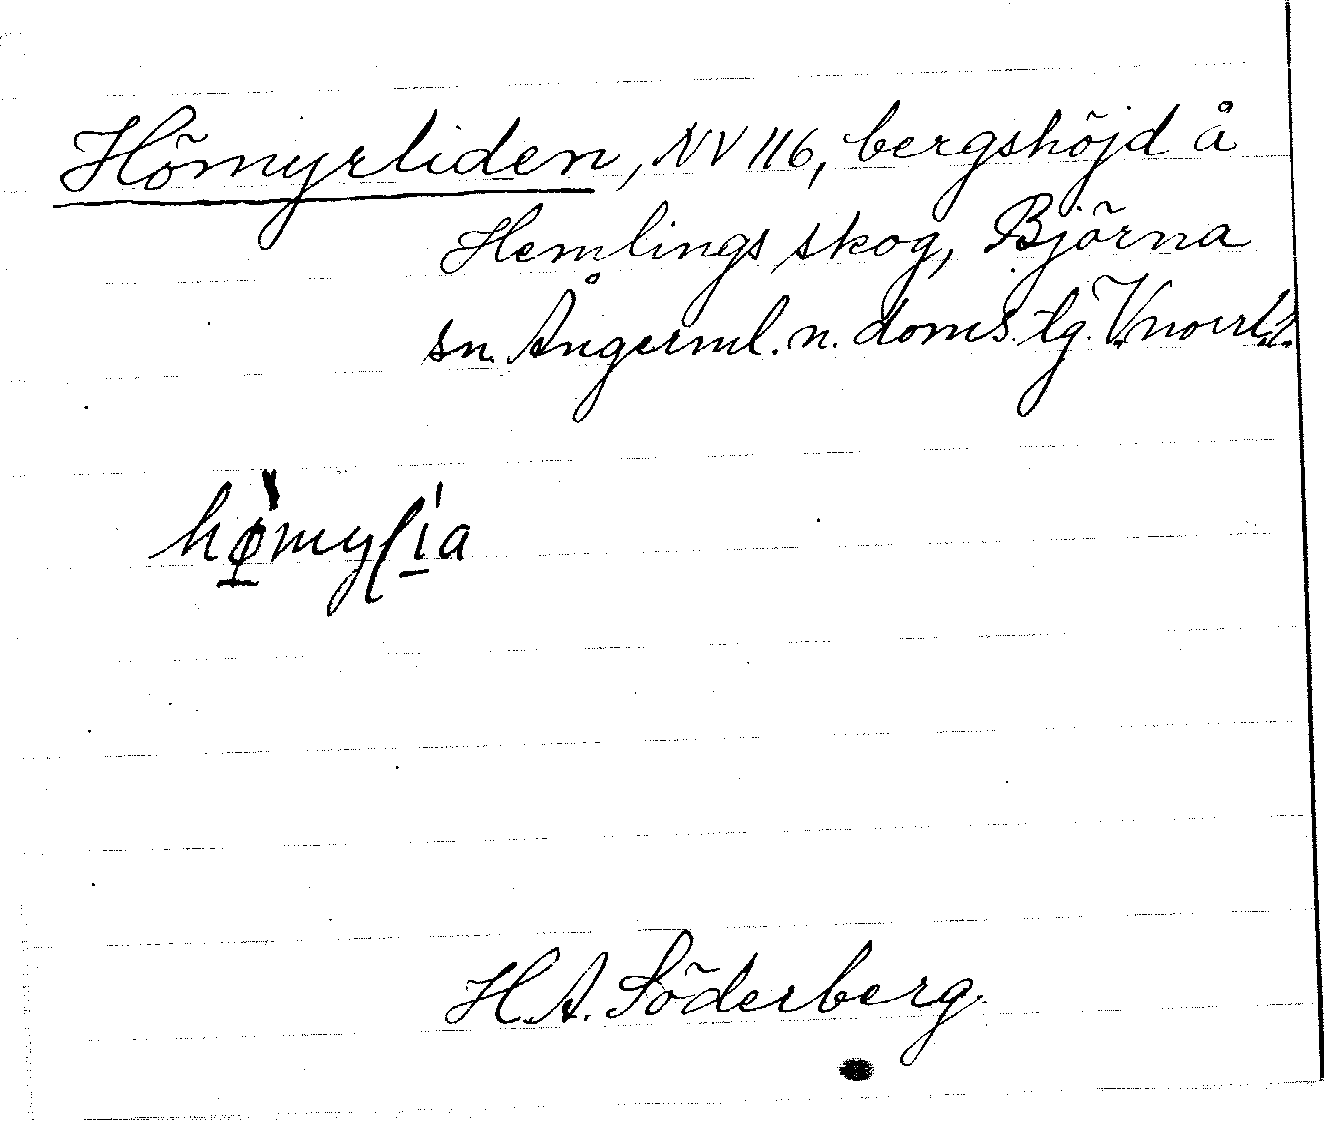 Hömyrliden, NV 116, bergshöjd å
Hemlings skog, Björna
sn. Ångerml. n. doms. tg. V. norrl.
hømylia
H.A. Söderberg.